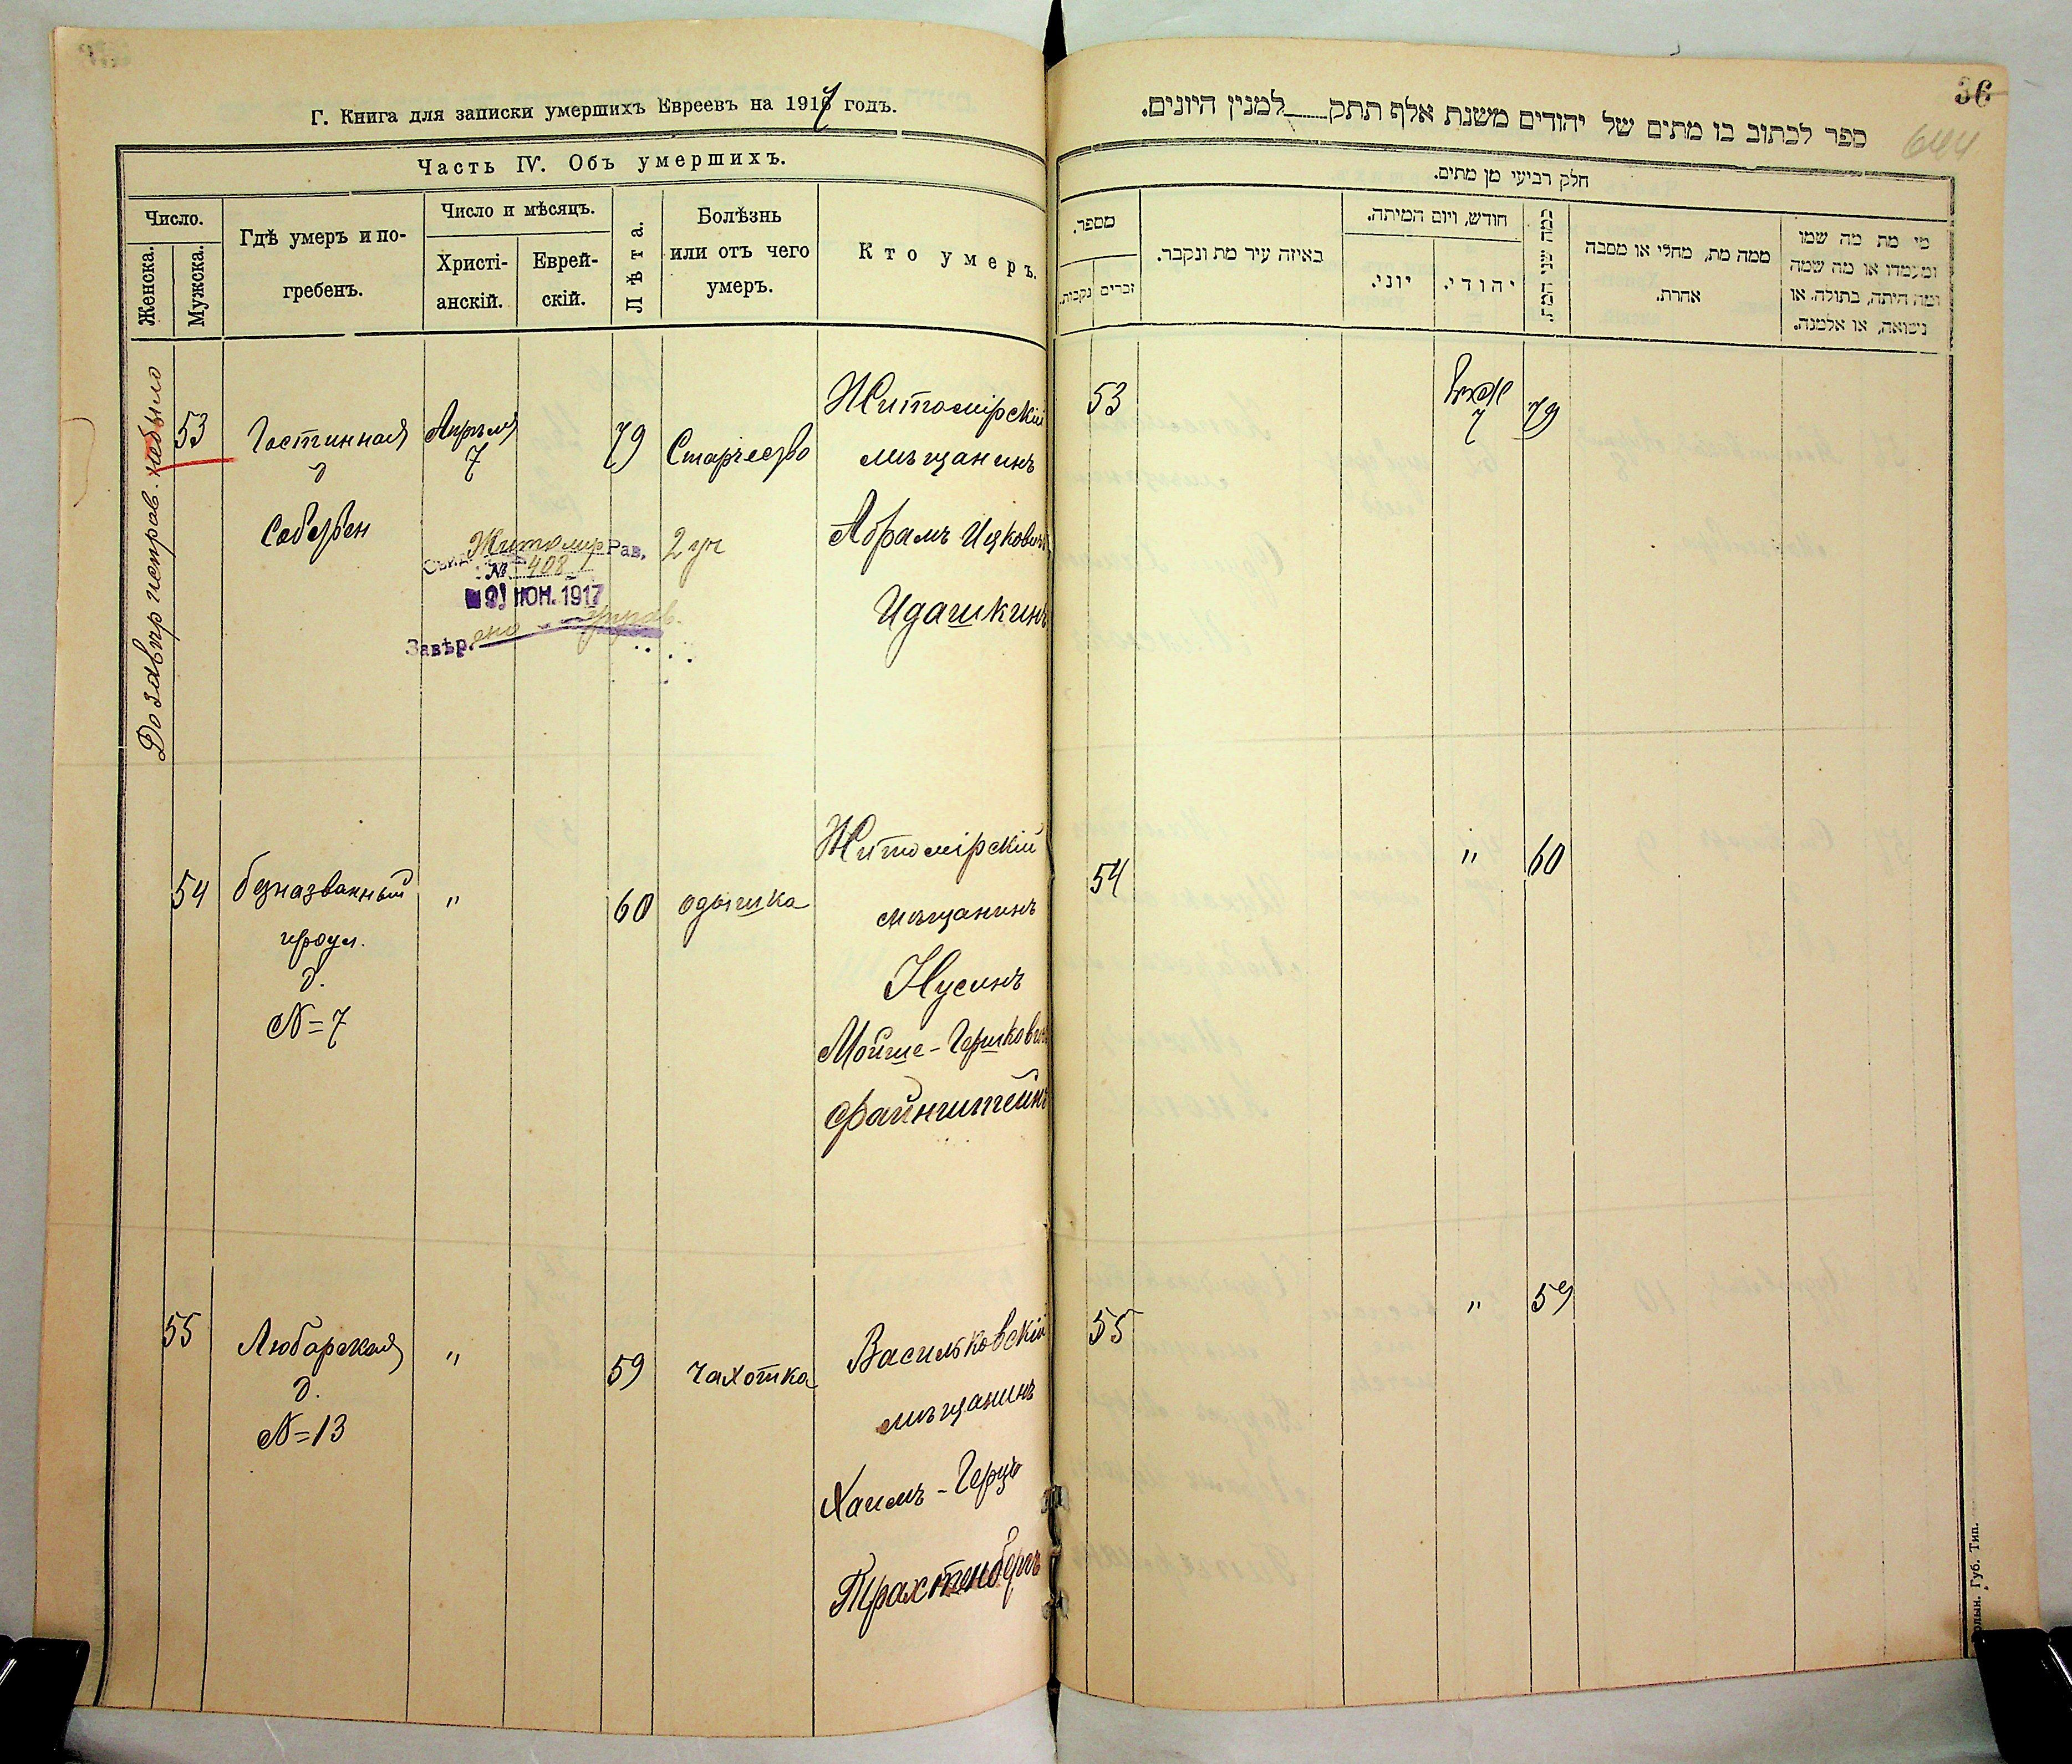 Г. Книга для записки умершихъ Евреевъ на 1917 годъ.
Часть IV. Объ умершихъ.
Число.
Женска.
Мужска.
Гдѣ умеръ и по-
гребенъ.
Число и мѣсяцъ.
Христі-
анскій.
Еврей-
скій.
Лѣта.
Болѣзнь
или отъ чего
умеръ.
Кто умеръ.
До завѣр неправ. не было
53
Гостинная
д
Апрѣля
7
79
Старчество
2 уч
Житомірскій
мѣщанинъ
Абрамъ Ицковичъ
Идашкинъ
Житомир Рав.
№ 408
21 ИЮН. 1917
Завѣрено
54
безназванный
проул.
д.
№ 7
"
60
одышка
Житомірскій
мѣщанинъ
Нусинъ
Мойше-Гершковичъ
Файнштейнъ
55
Любарская
д.
№ 13
"
59
чахотка
Васильковскій
мѣщанинъ
Хаимъ-Герцъ
Трахтенбергъ
36
644
ספר לכתוב בו מתים של יהודים משנת אלף תתק למנין היונים.
חלק רביעי מן מתים.
מספר.
זכרים
נקבות.
באיזה עיר מת ונקבר.
חודש, ויום המיתה.
יוני.
יהודי.
כמה שני המת.
ממה מת, מחלי או מסבה
אחרת.
מי מת מה שמו
ומעמדו או מה שמה
ומה היתה, בתולה, או
נשואה, או אלמנה.
53
7
79
54
"
60
55
"
59
Губ. Тип.